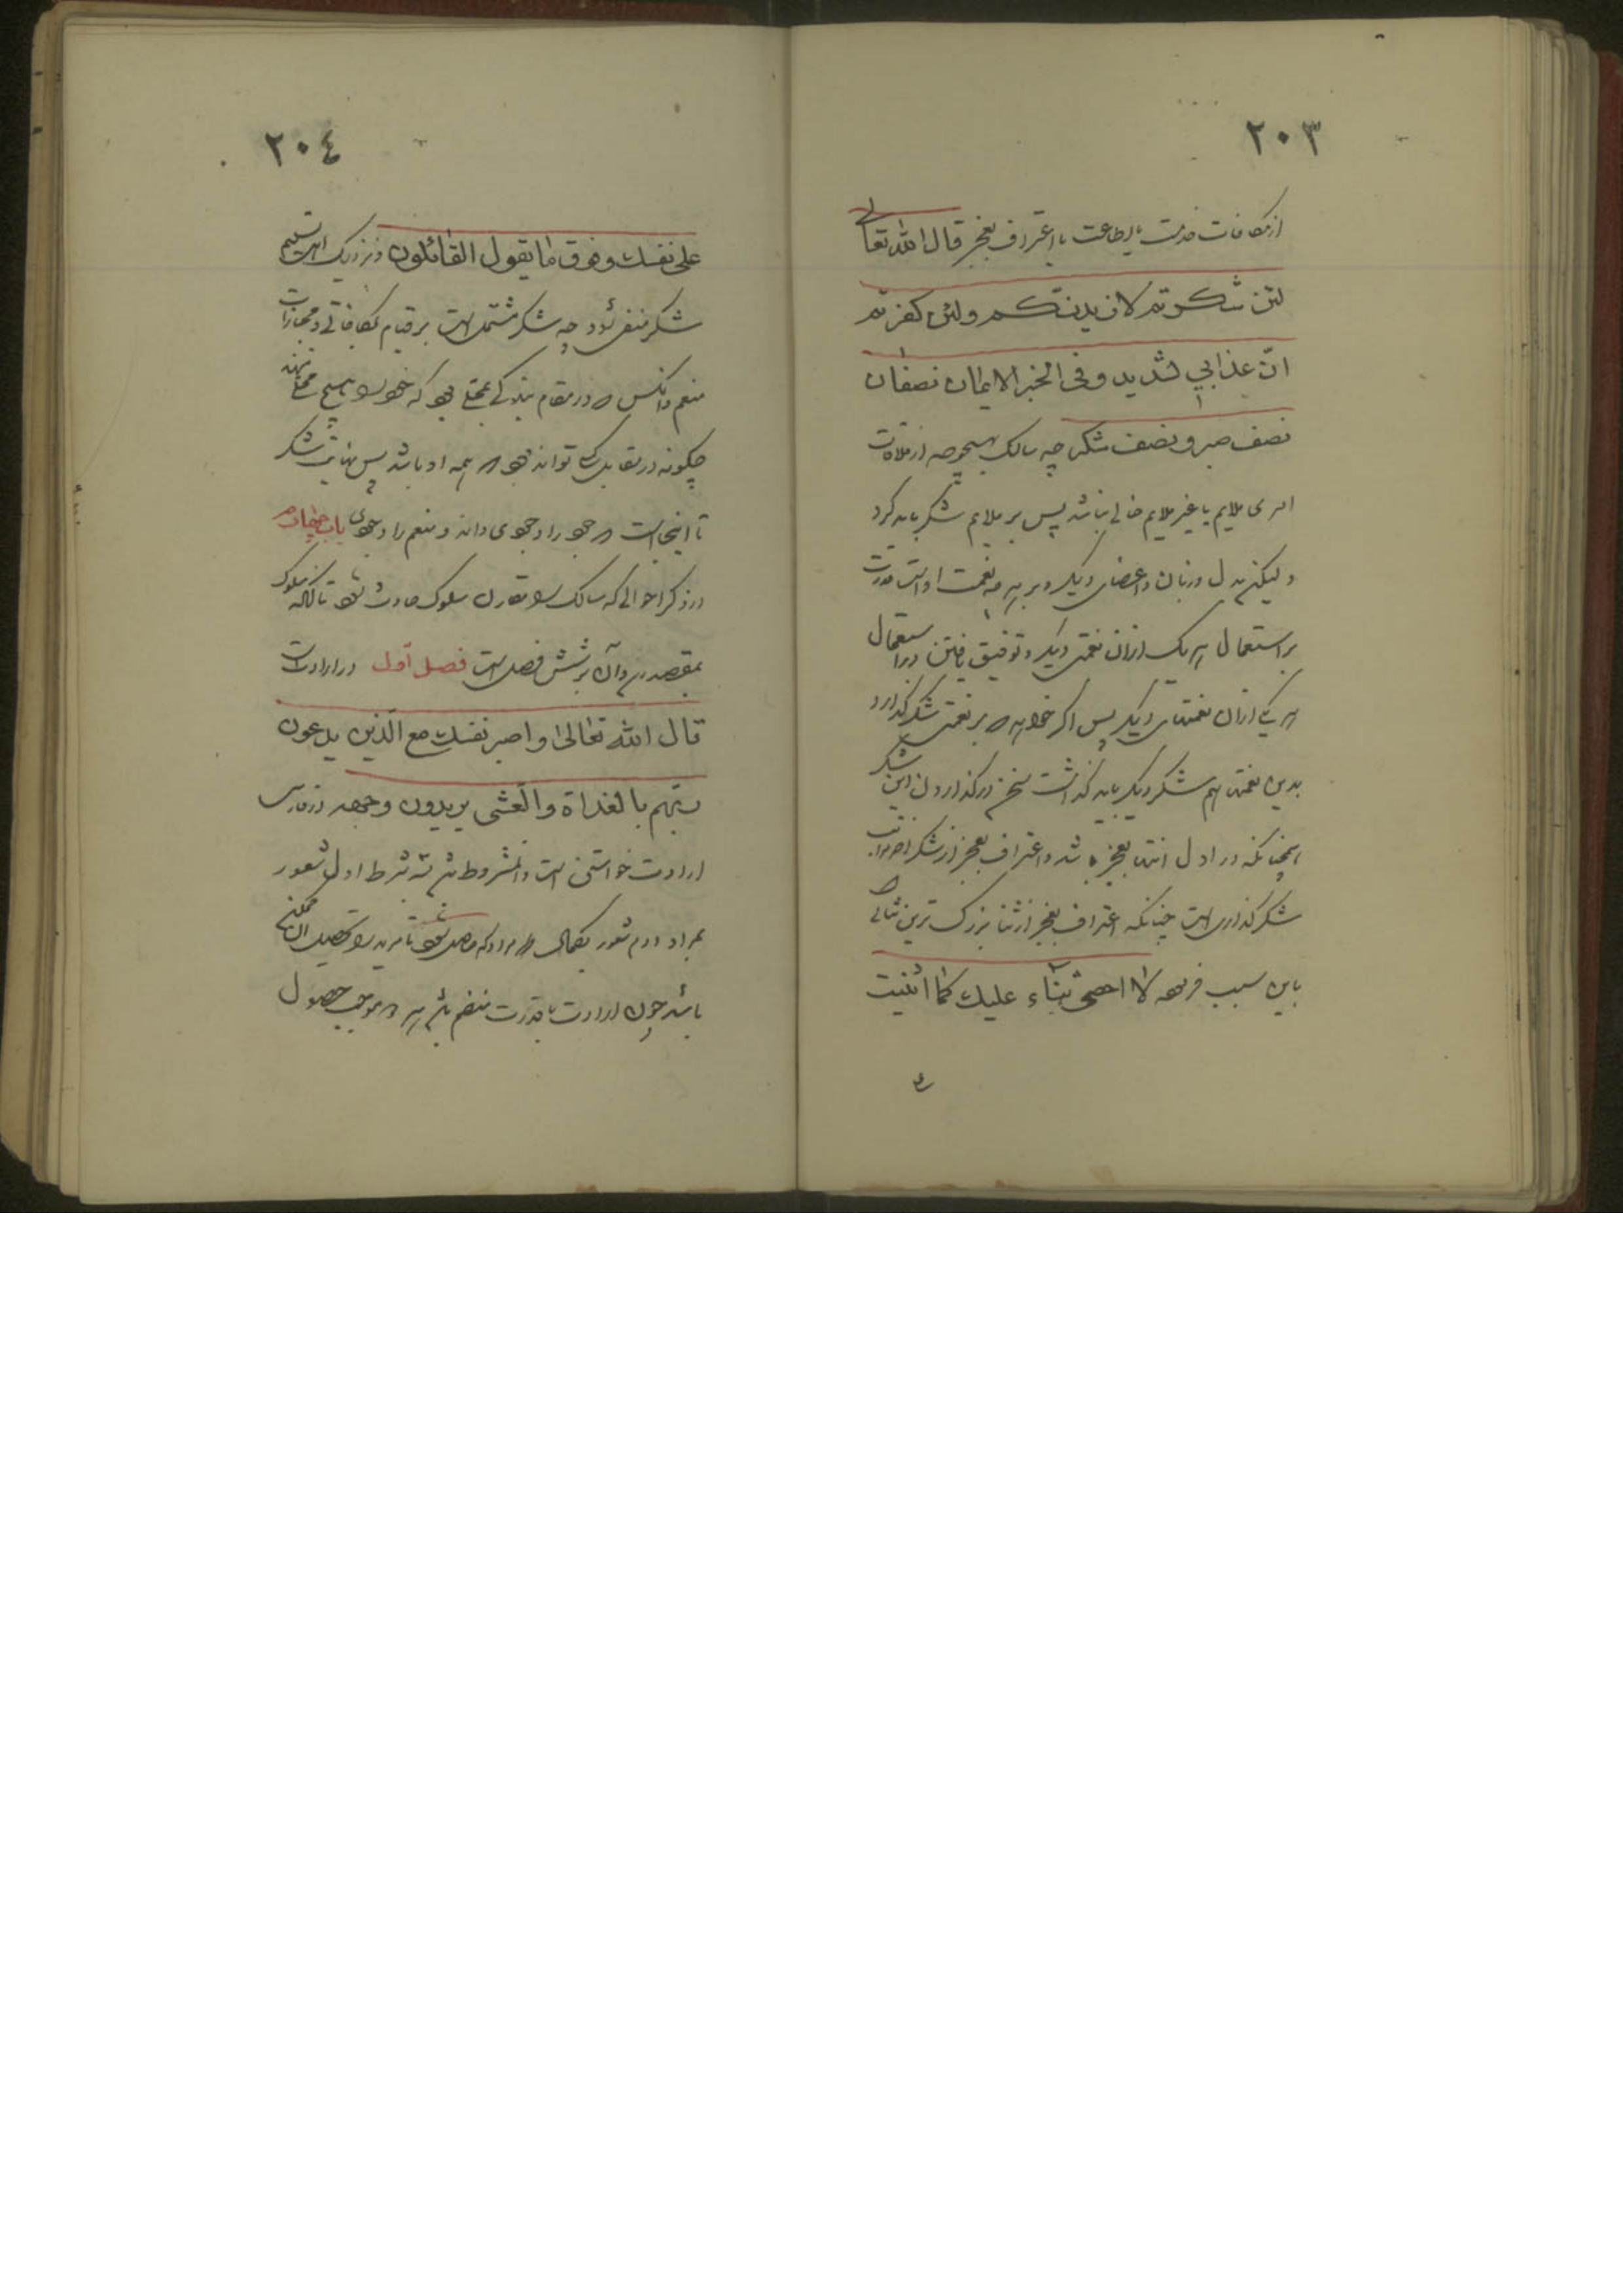 ٢٠٣
از مکافات خدمت یا بطاعت یا اعتراف بعجز قال الله تعالی
لئن شکرتم لازیدنکم ولئن کفرتم
انّ عذابی لشدید وفی الخبر الایمان نصفان
نصف صبر و نصف شکر چه سالک بهیچوجه از ملاقات
امری ملایم یا غیر ملایم خالی نباشد پس بر ملایم شکر باید کرد
ولیکن بدل وزبان واعضای دیگر وبر هر چه نعمت اوست قدرت
بر استعمال هر یک از ان نعمتی دیگر وتوفیق یافتن در استعمال
هر یکی از ان نعمتهای دیگر پس اگر خواهد که بر نعمتی شکر گذارد
بدین نعمتها هم شکر دیگر باید گذاشت سخن در گذاردن این شکر
همچنانکه در اول انتها بعجز باشد و اعتراف بعجز از شکر اخر مراتب
شکر گذاری است چنانکه اعتراف بعجز از ثنا بزرگ ترین ثنائی
باین سبب فرمود لا احصی ثناء علیک کما اثنیت
٢٠٤
علی نفسک وفوق ما یقول القائلون ونزدیک اهل تسلیم
شکر منتفی شود چه شکر مشتمل است بر قیام بمکافاتی ومجازات
منعم وانکس که در مقام بندگی بمحلی بود که خود را بهیچ محلی ننهد
چگونه در مقابل کسی تواند بود که همه او باشد پس نهایت شکر
تا اینجاست که خود را وجودی داند و منعم را وجودی باب چهارم
در ذکر احوالی که سالک را مقارن سلوک حادث شود تا آنکه
بمقصد رسد وآن بر شش فصل است فصل اول در ارادت
قال الله تعالی واصبر نفسک مع الّذین یدعون
ربّهم بالغداة والعشی یریدون وجهه در فارسی
ارادت خواستن است وان مشروط بسه شرط اول شعور
بمراد دوم شعور بکمالی که مراد را حاصل شود تا مرید را تحصیل آن ممکن
باشد چون ارادت با قدرت منضم شود هر دو موجب حصول